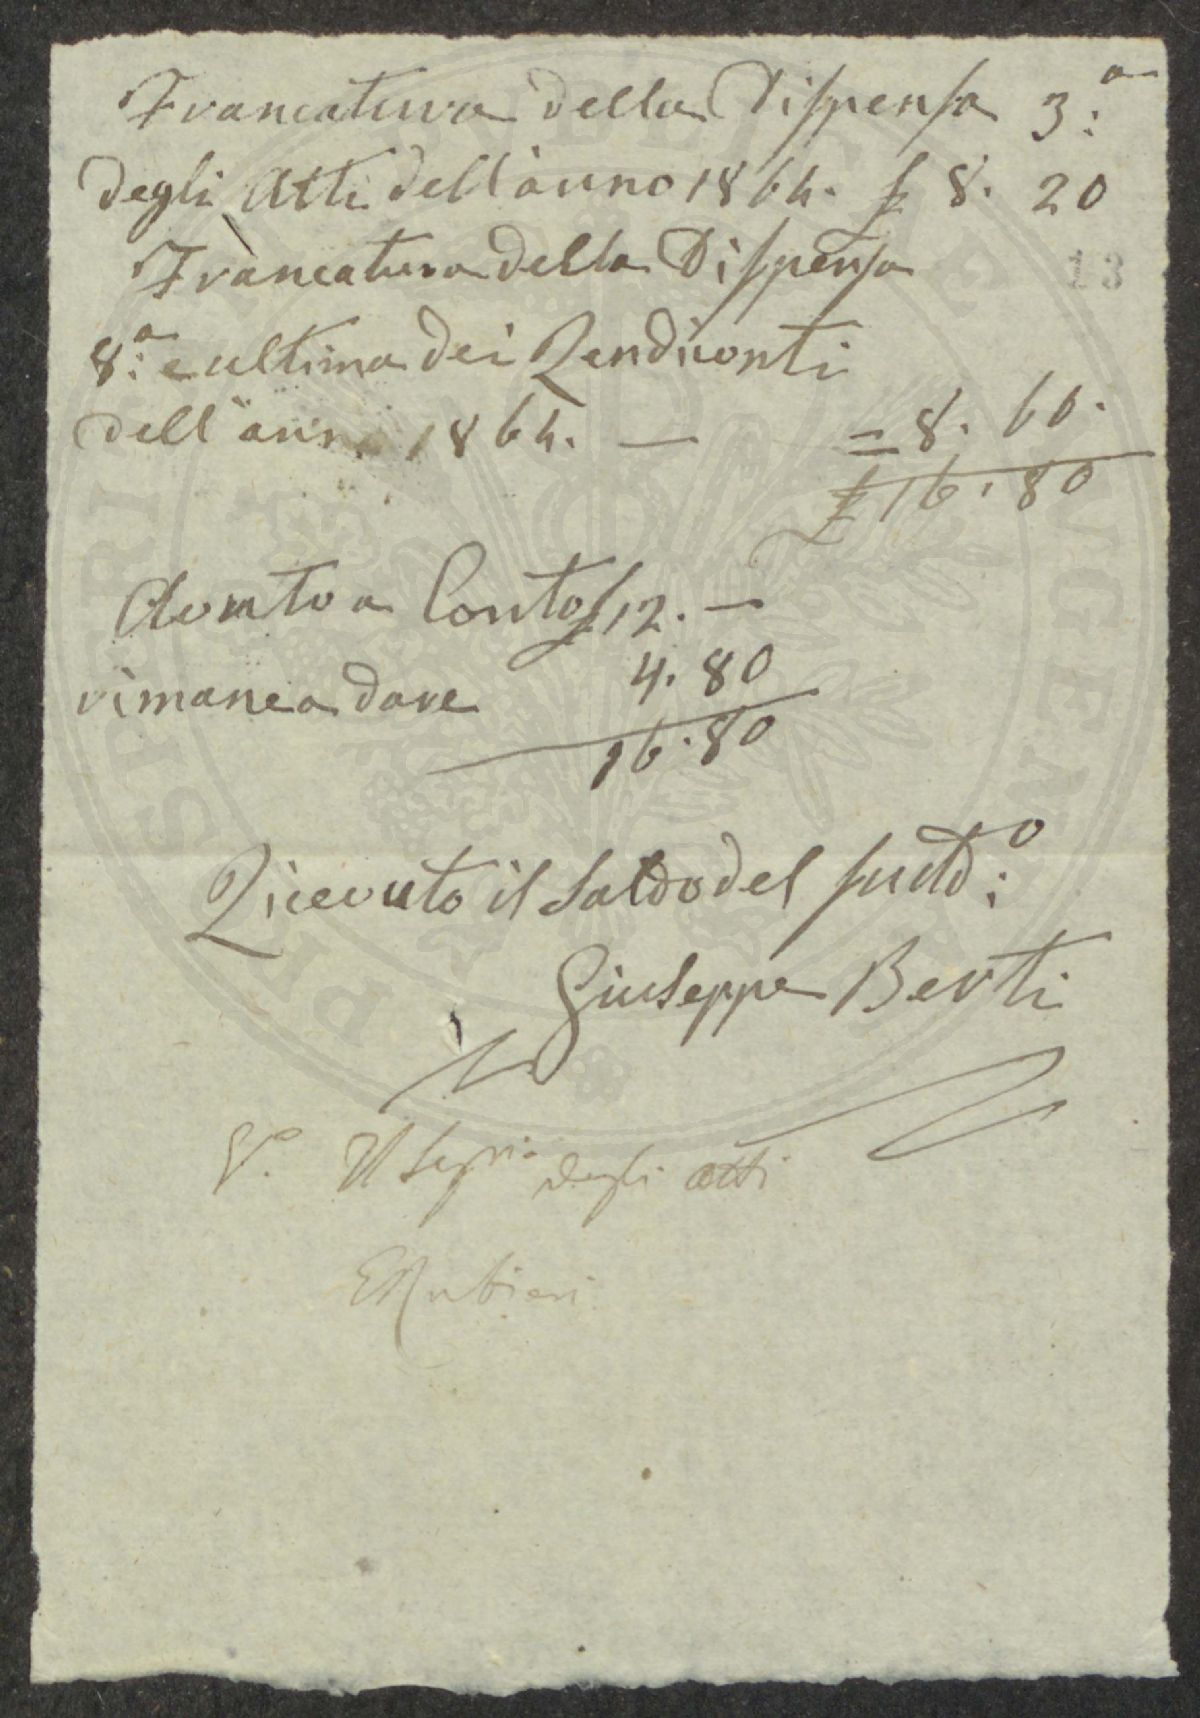 Francatura della Dispensa 3:a
degli Atti dell'anno 1864. £ 8. 20
13
Francatura della Dispensa
8:a e ultima dei Rendiconti
dell'anno 1864. — = 8. 60.
£ 16. 80
Avuto a Conto £ 12. —
rimane a dare 4. 80
16. 80
Ricevuto il Saldo del sudd:o
Giuseppe Berti
Vo. Il Segrio degli atti
E Rubieri
PROSPERITATI